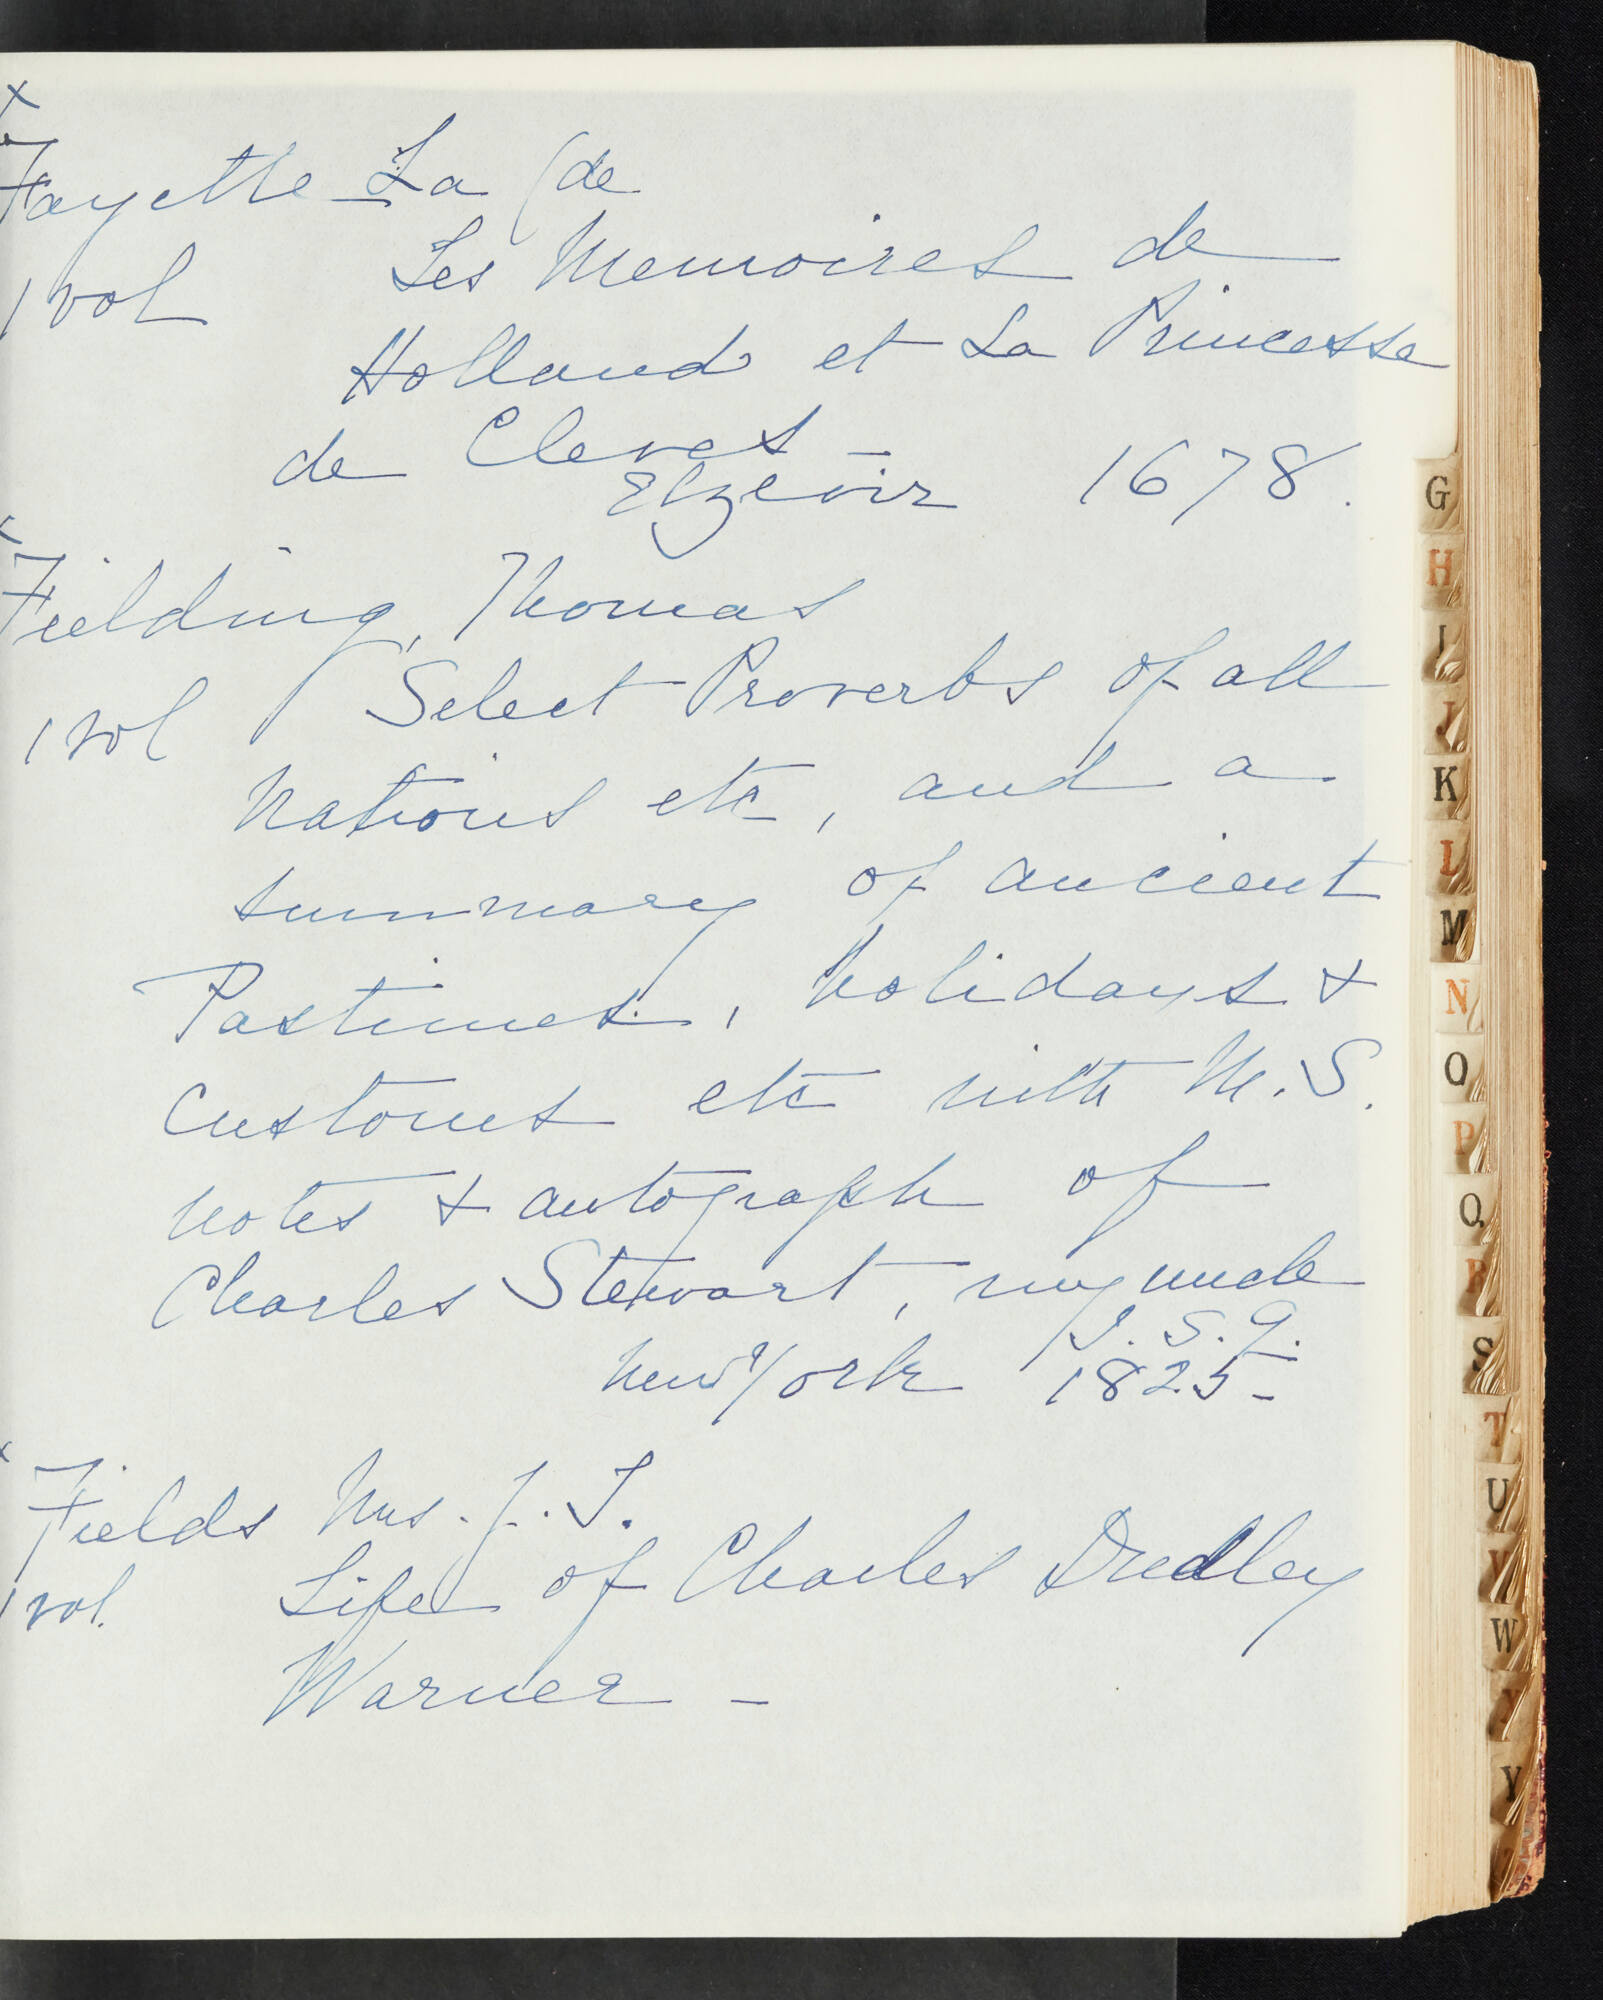 x
Fayette La (de
1 vol Les Memoires de
Holland et La Princesse
de Cleves —
Elzevir 1678.
x
Fielding, Thomas
1 vol Select Proverbs of all
Nations etc, and a
summary of ancient
Pastimes, holidays &
customs etc with M.S.
notes & autograph of
Charles Stewart, my uncle
I. S. G.
New York 1825 –
x
Fields Mrs. J. T.
1 vol. Life of Charles Dudley
Warner –
G
H
I
J
K
L
M
N
O
P
Q
R
S
T
U
V
W
X
Y